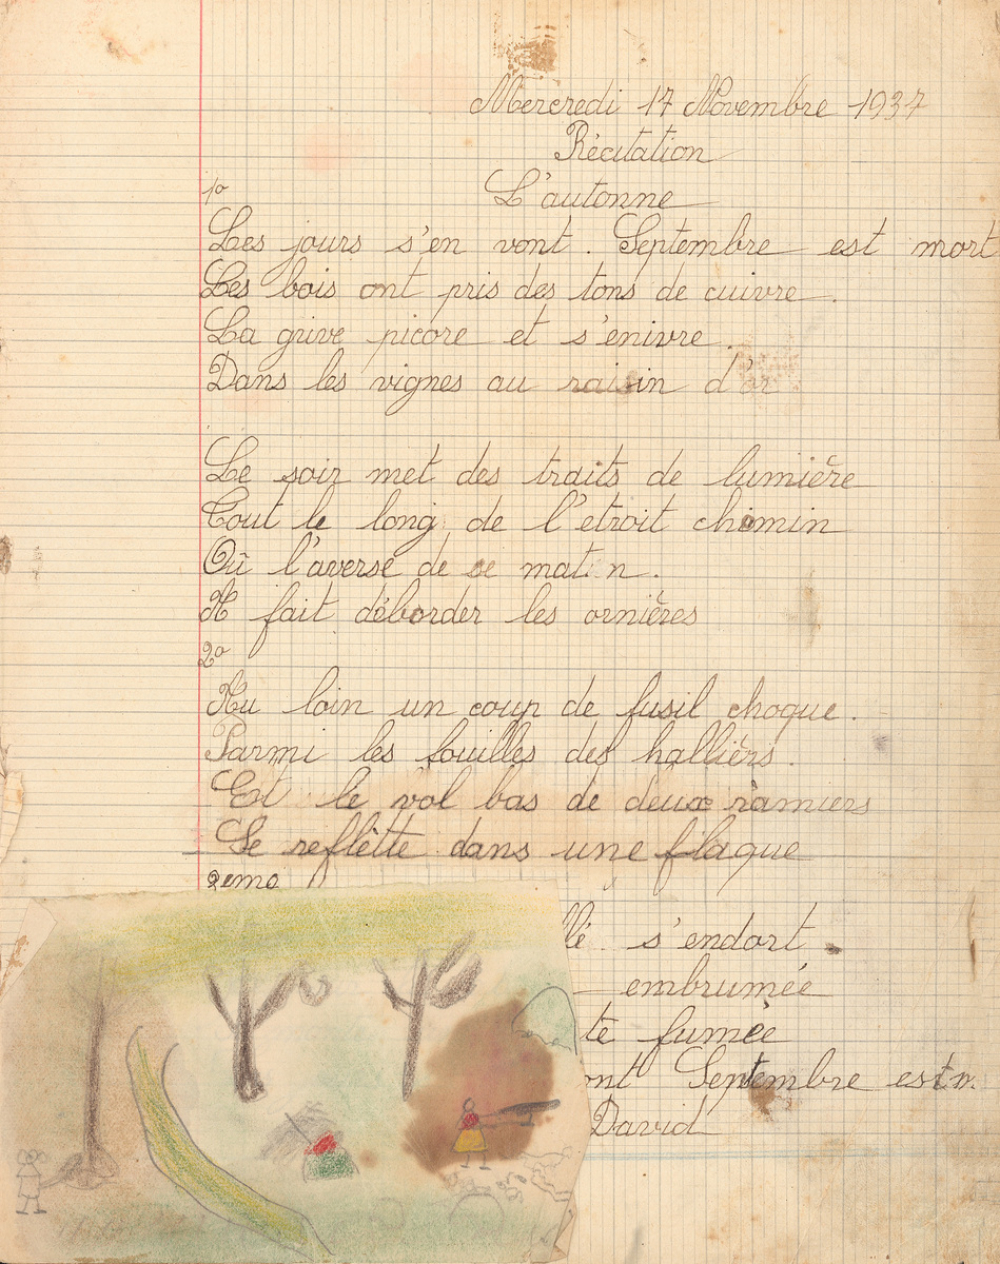 Mercredi 17 Novembre 1937
Récitation
1º
L'autonne
Les jours s'en vont. Septembre est mort
Les bois ont pris des tons de cuivre.
La grive picore et s'enivre.
Dans les vignes au raisin d'or
Le soir met des traits de lumière
Tout le long de l'etroit chimin
Où l'averse de ce matin.
A fait déborder les ornières
2º
Au loin un coup de fusil choque.
Parmi les fouilles des halliérs.
Et le vol bas de deux ramiers
Se reflètte dans une flaque
lé s'endort.
embrumée
te fumée
ont Septembre est m.
David